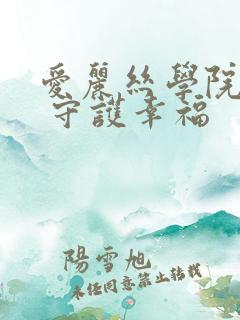 愛麗絲學院
守護幸福
陽雪旭
未經同意禁止轉載